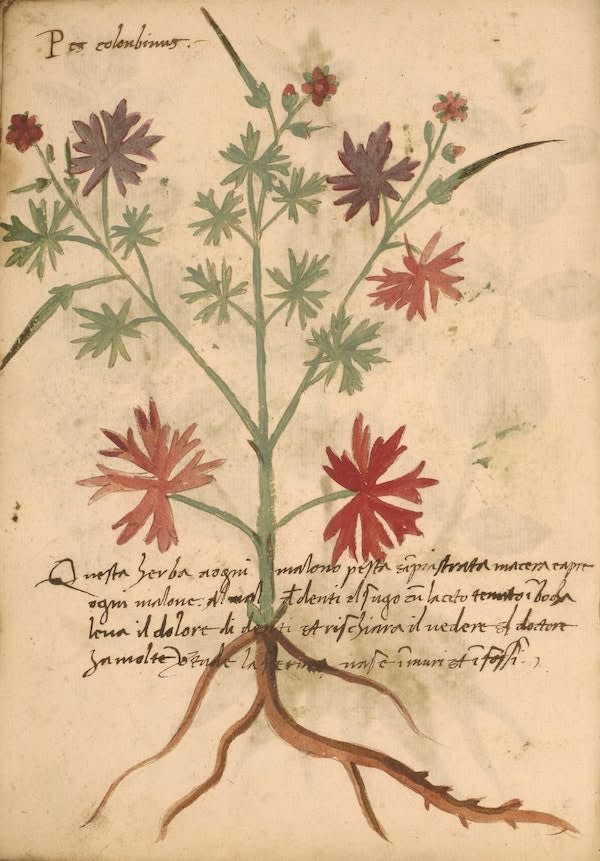 Pes colonbinus.
Questa herba aogni malono pesta impiastrata macera e apre
ogni malone. Al mal denti el sugo cu laceto tenuto i bocha
leva il dolore di denti et rischiara il vedere el doctore
ha molte nase i muri et i fossi.